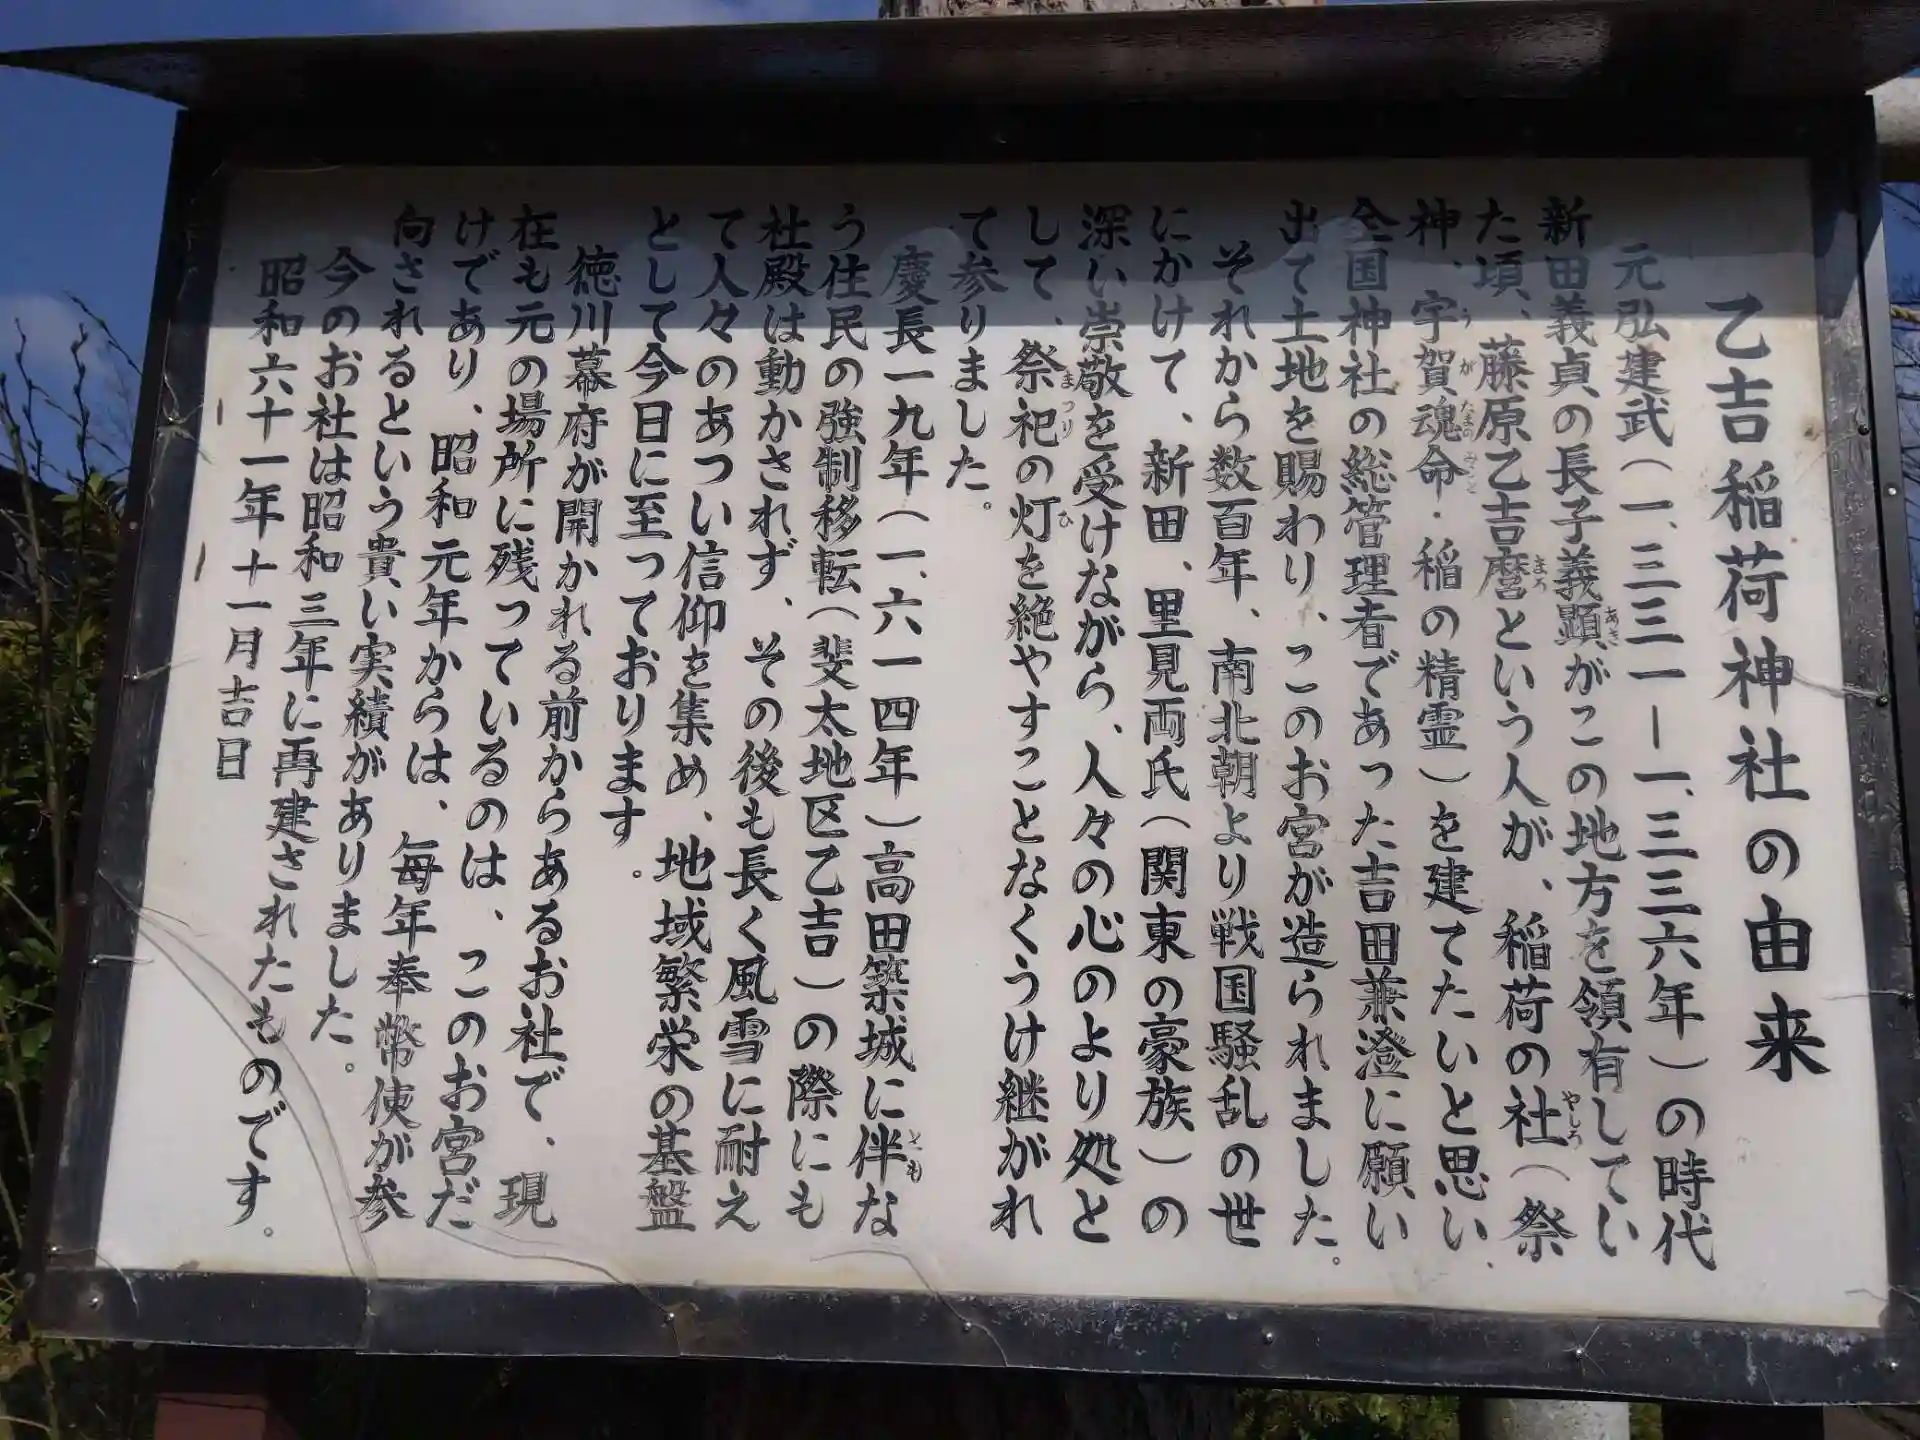 乙吉稲荷神社の由来
元弘建武（一、三三一－一、三三六年）の時代
新田義貞の長子義顕がこの地方を領有してい
た頃、藤原乙吉麿という人が、稲荷の社（祭
神、宇賀魂命・稲の精霊）を建てたいと思い、
全国神社の総管理者であった吉田兼澄に願い
出て土地を賜わり、このお宮が造られました。
それから数百年、南北朝より戦国騒乱の世
にかけて、新田、里見両氏（関東の豪族）の
深い崇敬を受けながら、人々の心のより処と
して、祭祀の灯を絶やすことなくうけ継がれ
て参りました。
慶長一九年（一、六一四年）高田築城に伴な
う住民の強制移転（斐太地区乙吉）の際にも
社殿は動かされず、その後も長く風雪に耐え
て人々のあつい信仰を集め、地域繁栄の基盤
として今日に至っております。
徳川幕府が開かれる前からあるお社で、現
在も元の場所に残っているのは、このお宮だ
けであり、昭和元年からは、毎年奉幣使が参
向されるという貴い実績がありました。
今のお社は昭和三年に再建されたものです。
昭和六十一年十一月吉日